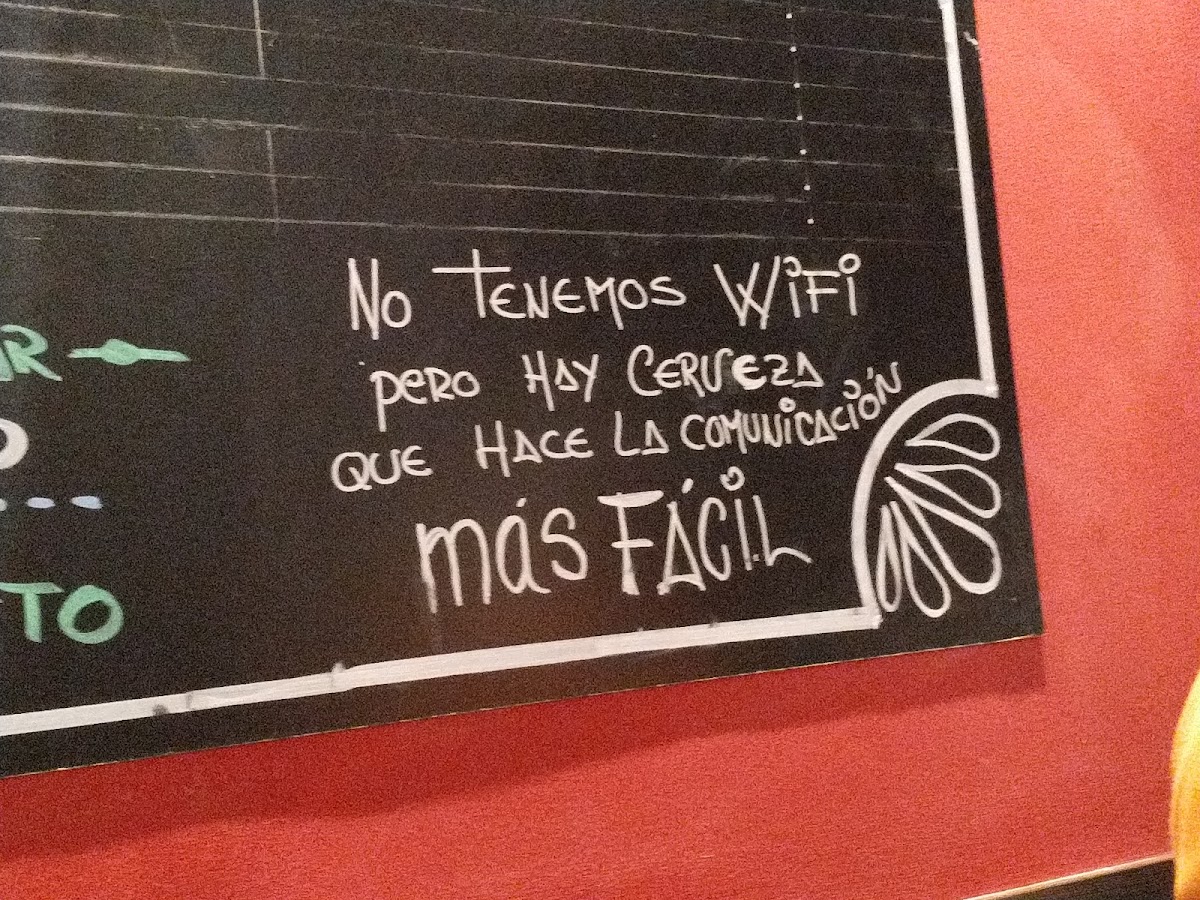 No TENEMOS WiFi
pero HAY CERVEZA
QUE HACE LA COMUNICACIÓN
más FÁCIL
TO